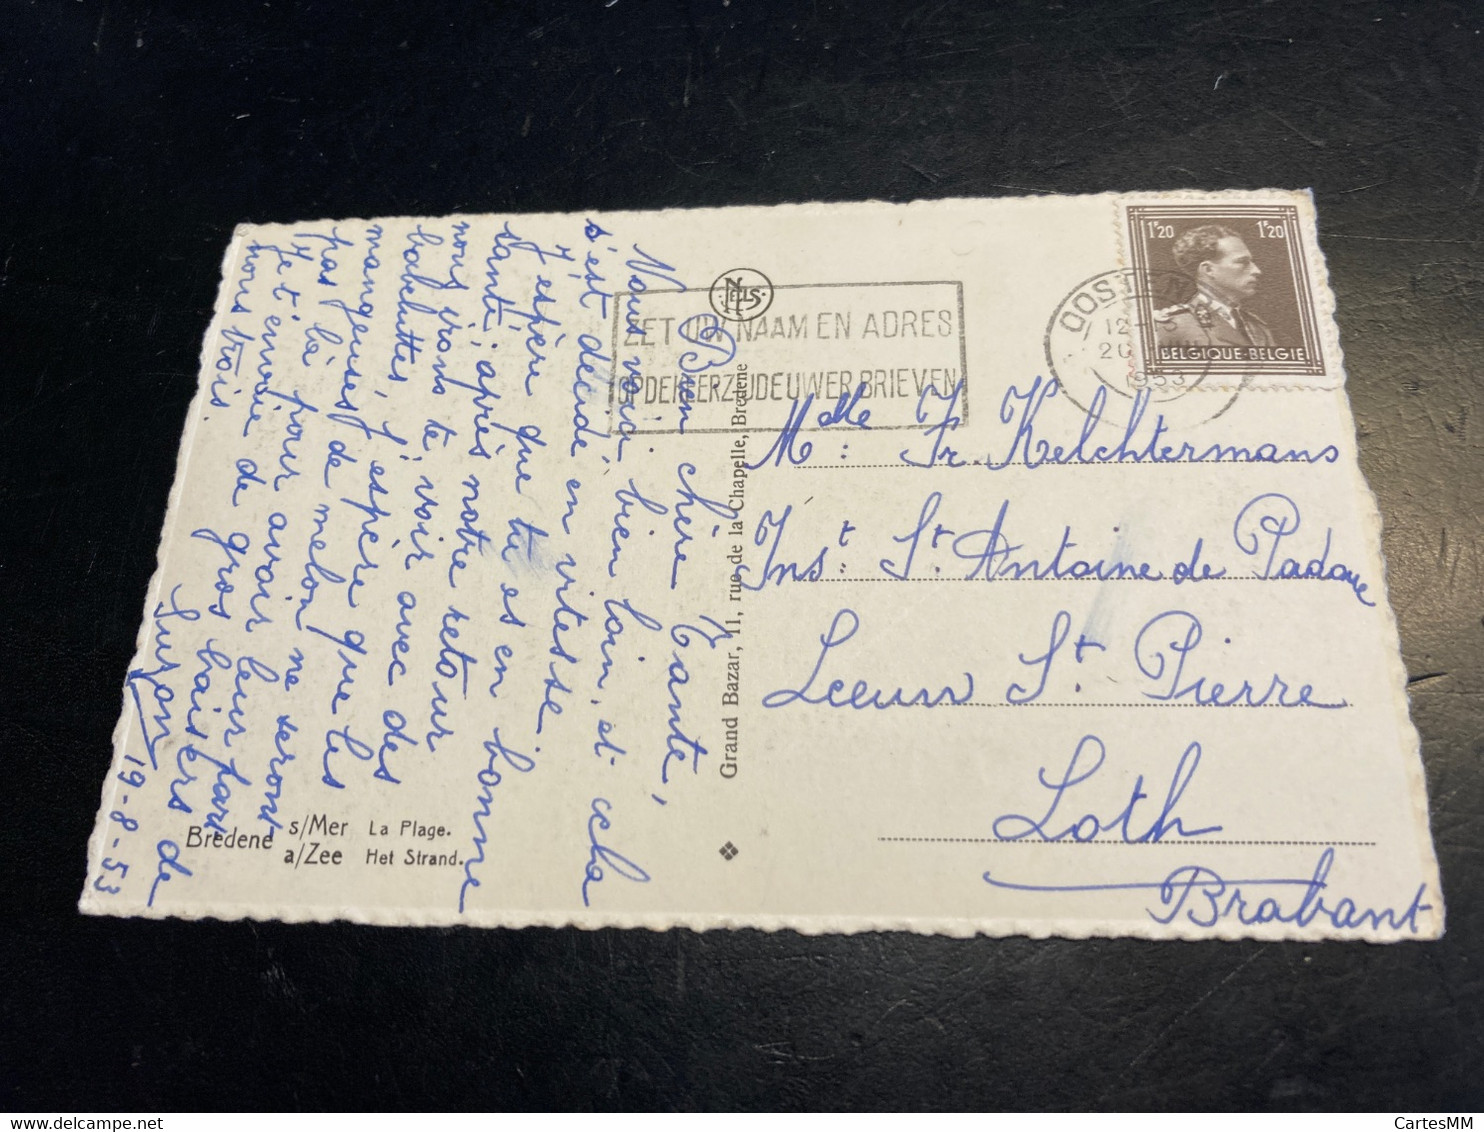 Bien chère Tante,
Nous voici bien loin, et cela
s'est décidé en vitesse.
J'espère que tu es en bonne
santé, après notre retour
nous irons te voir avec des
babeluttes, j'espère que les
mangeuses de melon ne seront
pas là pour avoir leur part
Je t'envoie de gros baisers de
nous trois.
Suzon
19-8-53
Bredene s/Mer La Plage.
a/Zee Het Strand.
Grand Bazar, 11, rue de la Chapelle, Bredene
NELS
ZET UW NAAM EN ADRES
OP DE KEERZIJDE UWER BRIEVEN
OOSTEN
12-
20
1953
1F20 1F20
BELGIQUE-BELGIE
Melle: Fr. Kelchtermans
Inst: St Antoine de Padoue
Leeuw St. Pierre
Loth
Brabant
CartesMM